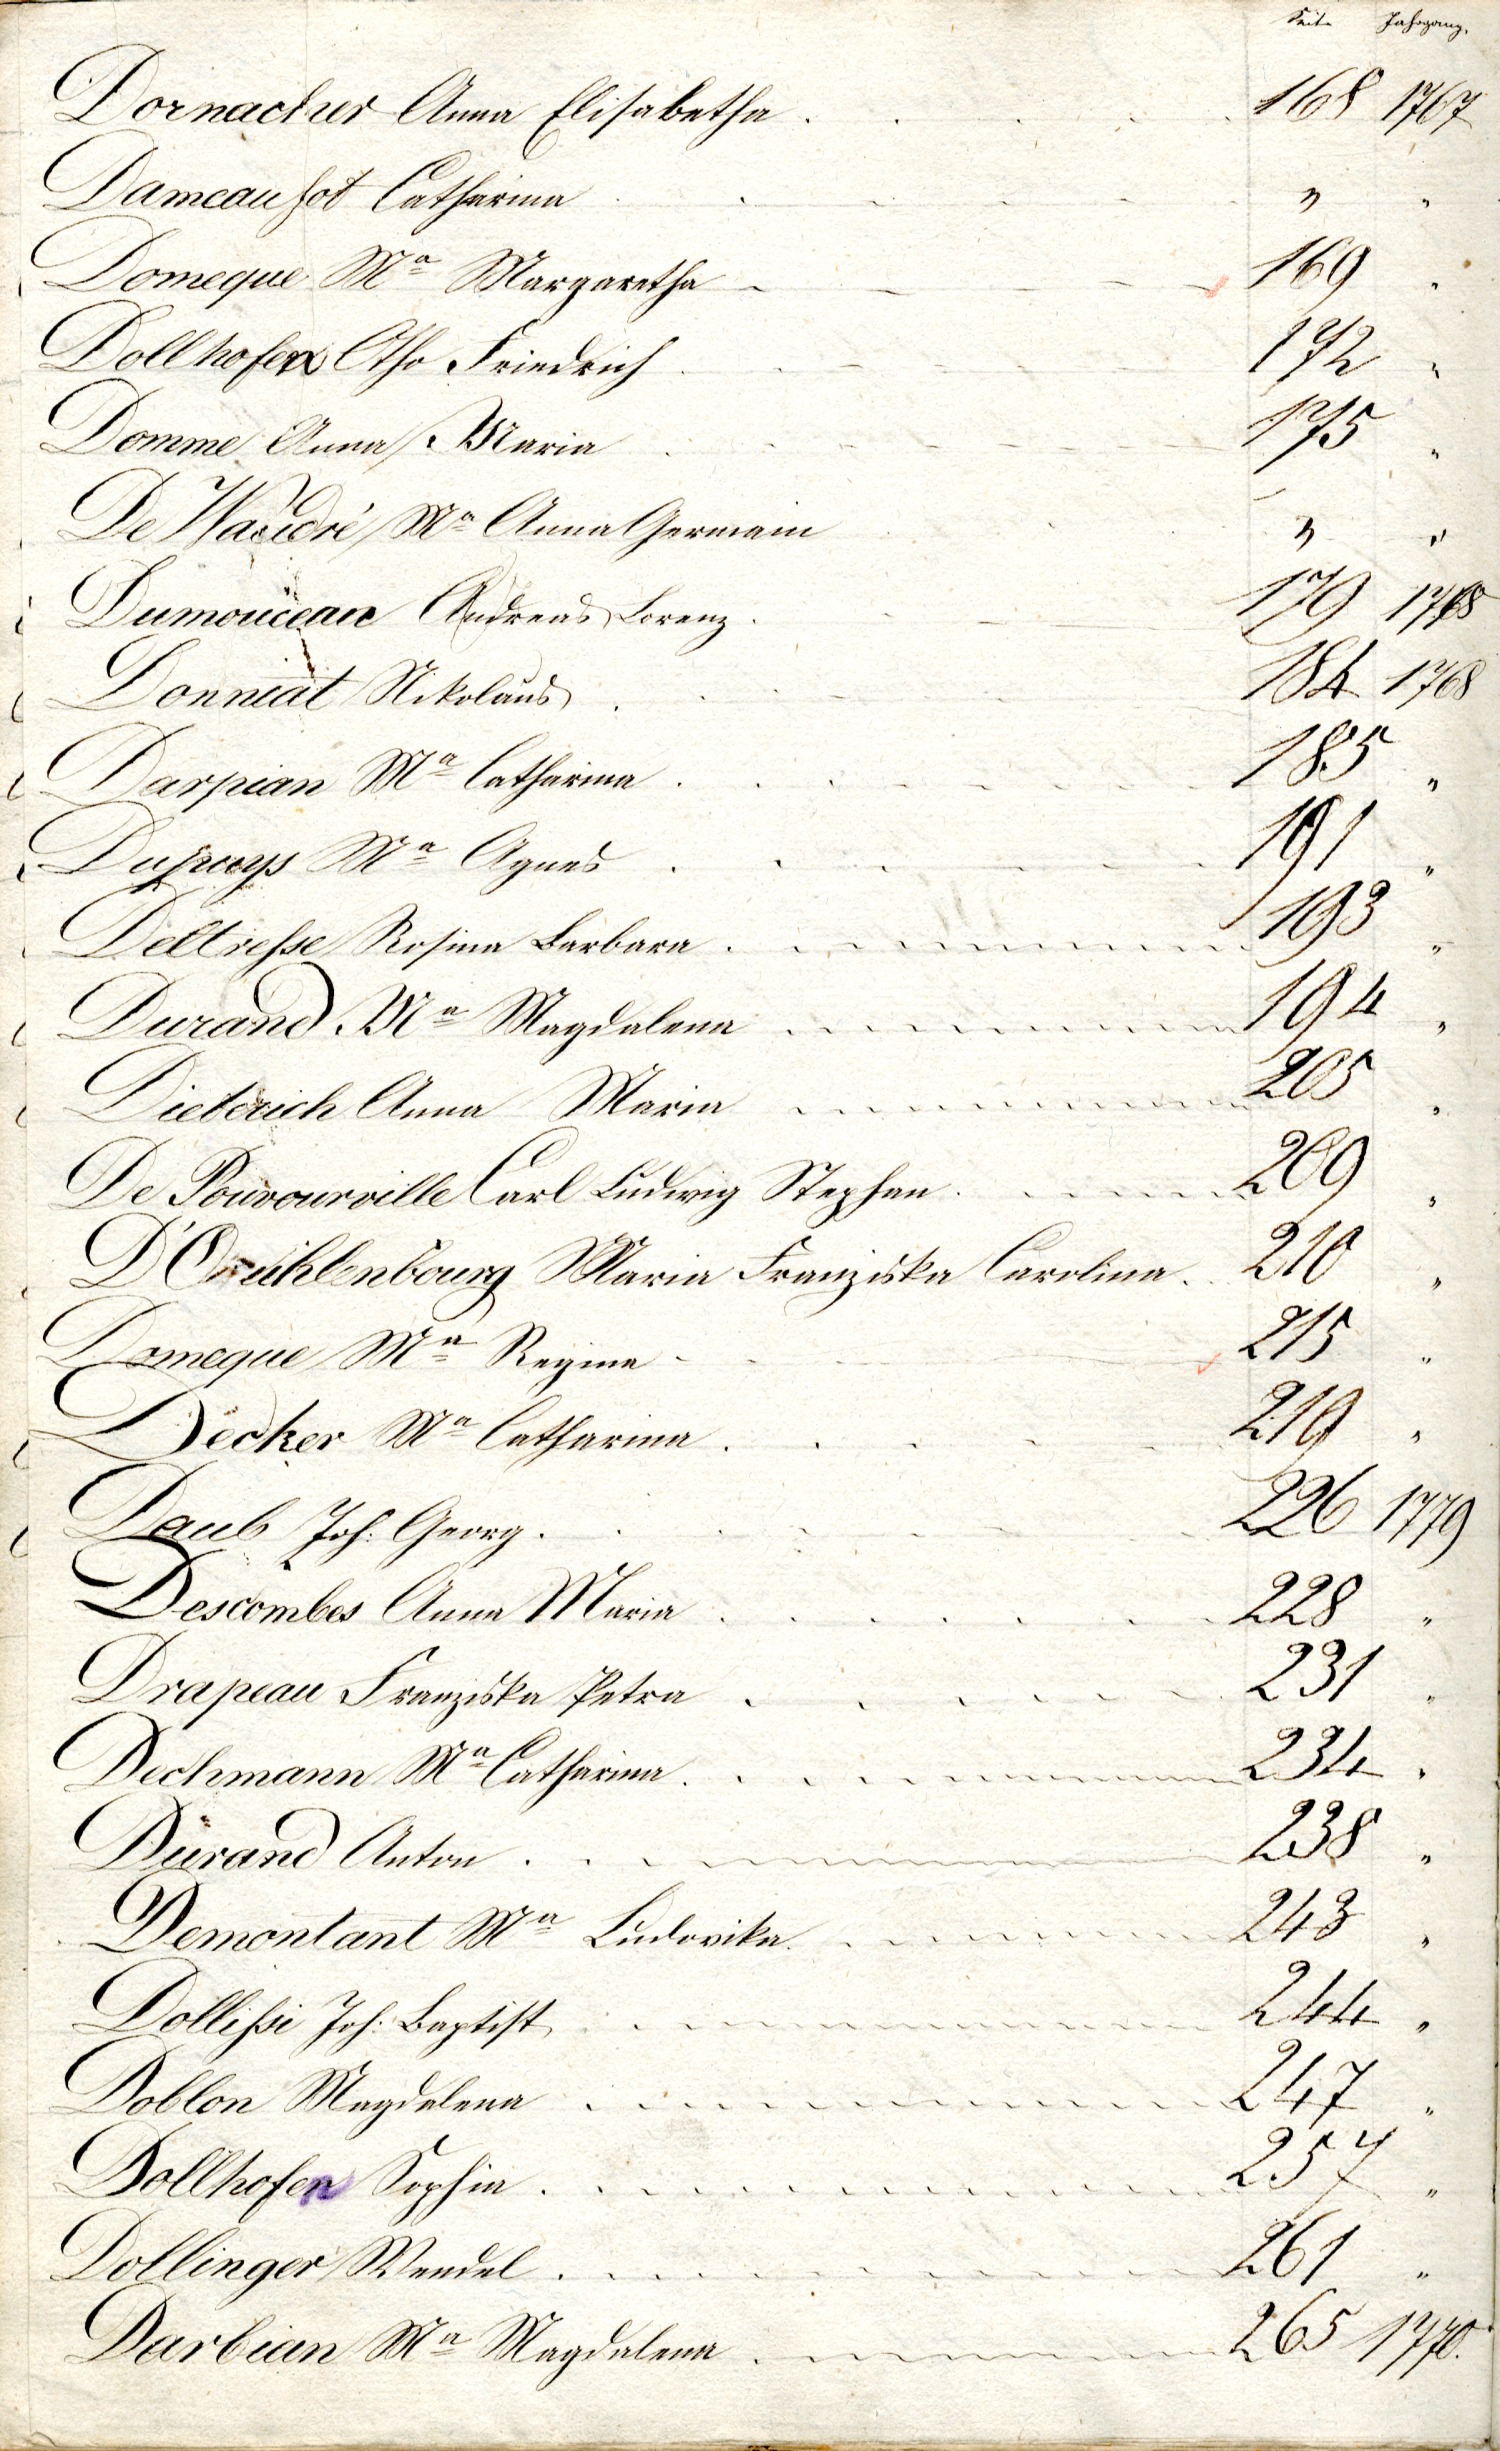 Seite Jahrgang.
Dornacher Anna Elisabetha . 168 1767
Dameaufot Catharina " "
Domeque Ma Margaretha 169 "
Dollhofen Otho Friedrich 172 "
Domme Anna Maria 175 "
De Waudré Ma Anna Germain " "
Dumouceau Andreas Lorenz . 179 1768
Donniat Nikolaus . 184 1768
Darpian Ma Catharina . 185 "
Dupuys Ma Agnes . 191 "
Deltresse Rosina Barbara . 193 "
Durand Ma Magdalena 194 "
Dieterich Anna Maria 205 "
De Pouvourville Carl Ludwig Stephan . 209 "
Maria Franziska Carolina . 210 "
Domeque Ma Regina 215 "
Decker Ma Catharina . 219 "
Daub Joh: Georg . 226 1779
Descombes Anna Maria . 228 "
Drapeau Franziska Petra . 231 "
Dechmann Ma Catharina . 234 "
Durand Anton . 238 "
Demontant Ma Ludovika . 243 "
Dollissi Joh: Baptist 244 "
Doblon Magdalena 247 "
Dollhofen Sophia . 257 "
Dollinger Wendel . 261 "
Darbian Ma Magdalena . 265 1770.